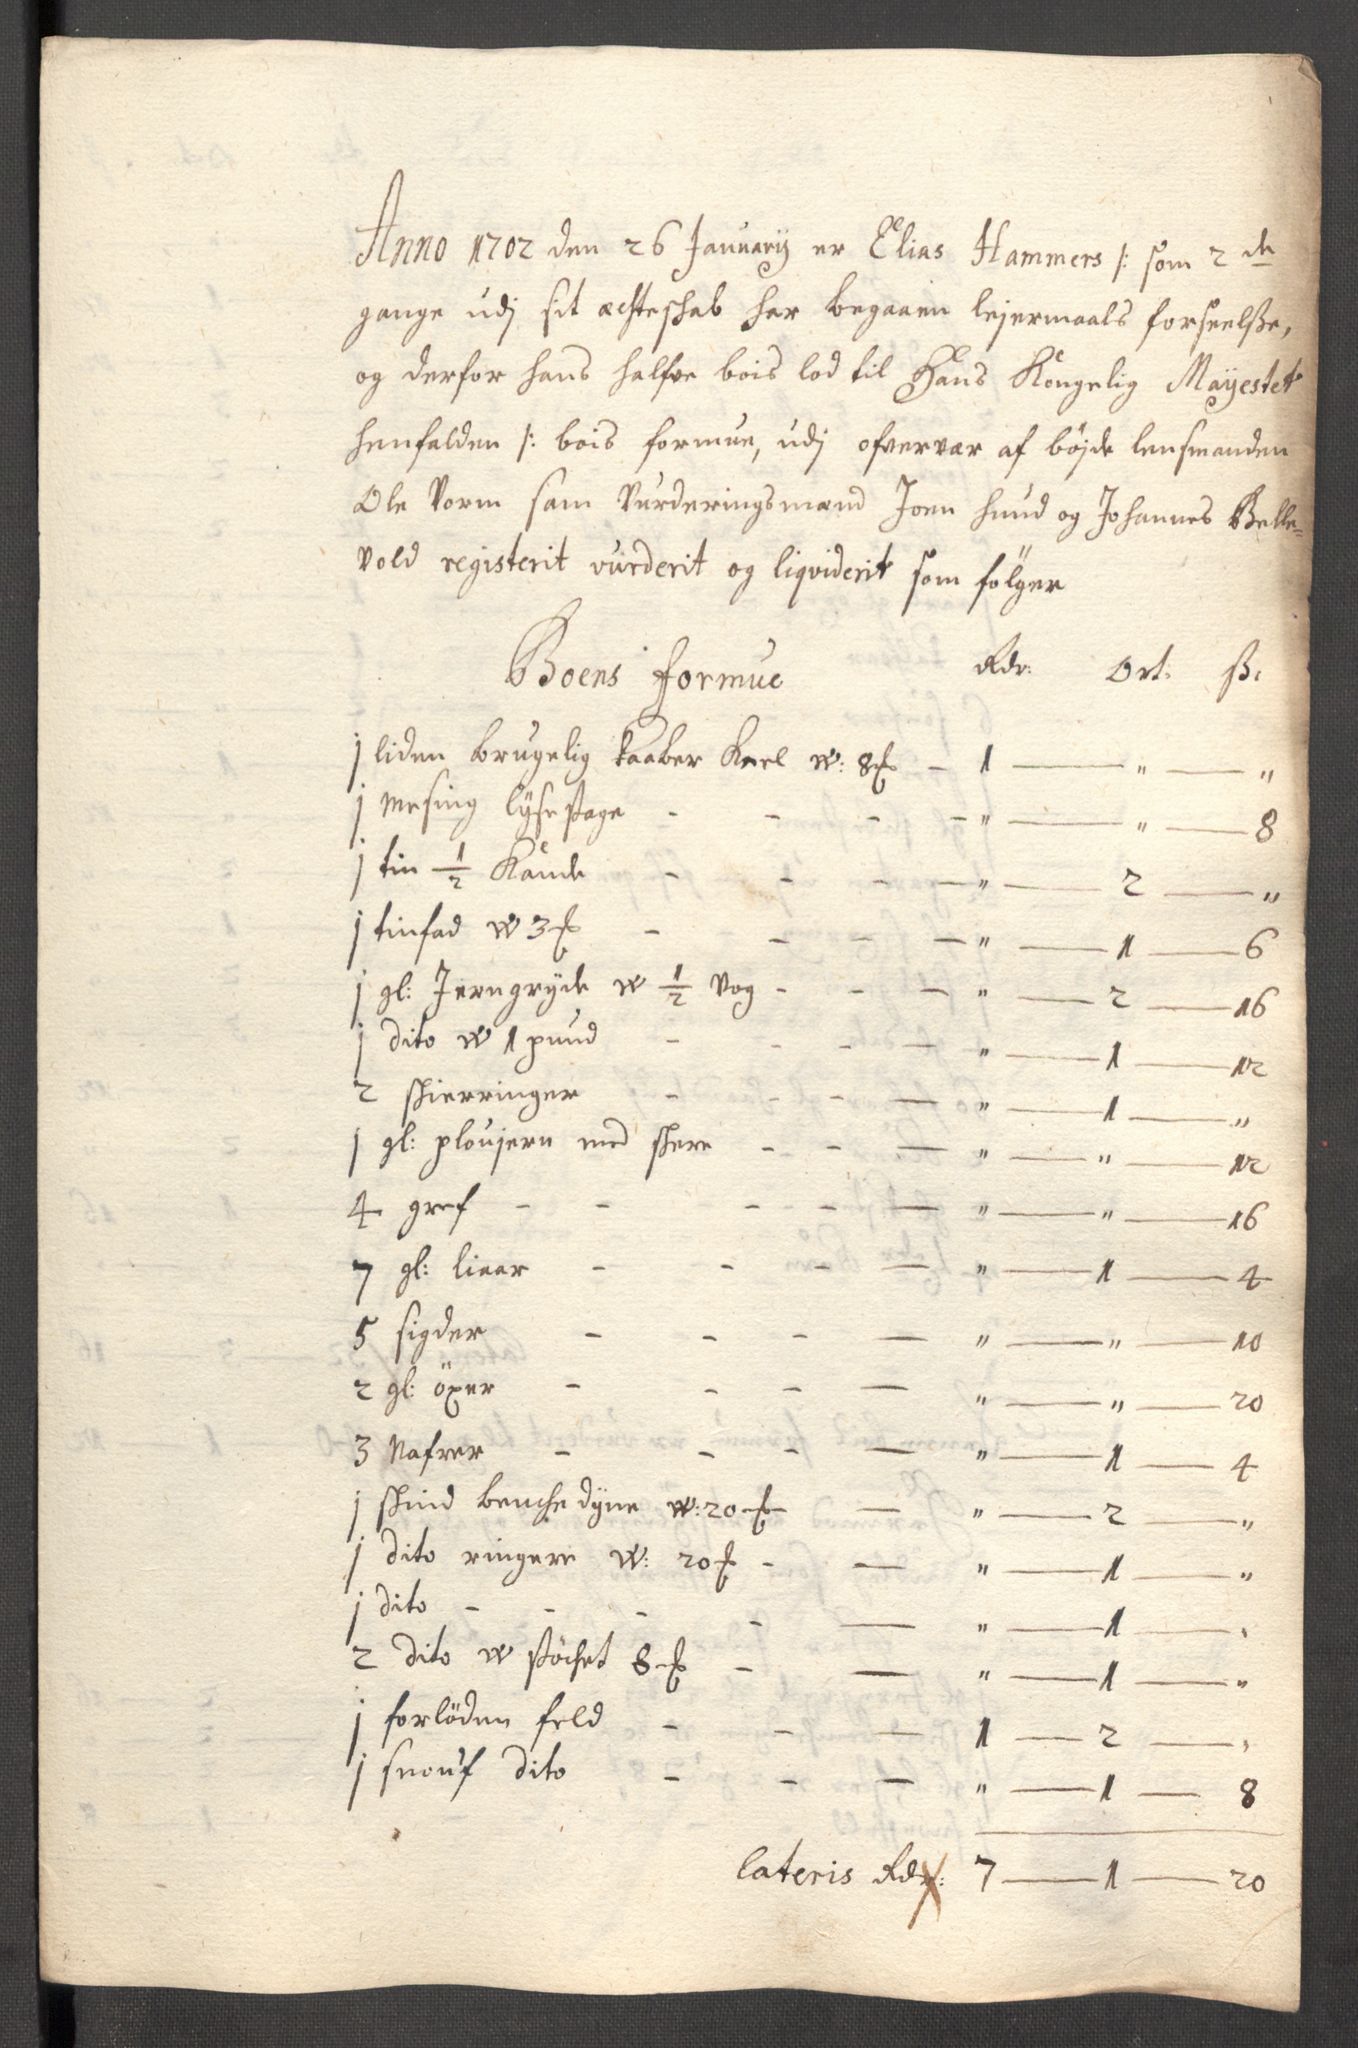 Anno 1702 den 26 Januarij er Elias Hammers /: som 2 de
gange udj sit ægteskab har begaaen lejermaals forseelße,
og derfor hans halfve bois lod til Hans Kongelig Mayestet
henfalden /: bois formue, udj ofvervær af böjde lensmanden
Ole Vorm sam Vurderingsmænd Joen hund og Johannes Belle=
vold registerit vurderit og liqviderit som fölger
Boens formue Rdr: Ort: ß:
1 liden brugelig kaaber Keel w: 8 ℔ – 1 — " — "
1 Mesing lÿse stage - - - - " — " — 8
1 tin 1/2 Kande - - - - " — 2 — "
1 tinfad w 3 ℔ - - - - " — 1 — 6
1 gl: Jerngrÿde w 1/2 vog - - - " — 2 — 16
1 dito w 1 pund - - - - " — 1 — 12
2 skierringer - - - - " — 1 — "
1 gl: ploujern med skere - - - " — " — 12
4 gref - - - - - " — " — 16
7 gl: liaar - - - - " — 1 — 4
5 sigder - - - - " — " — 10
2 gl: öxer - - - - " — " — 20
3 Nafrer - - - - " — 1 — 4
1 skind benche dÿne w: 20 ℔ - — " — 2 — "
1 dito ringere w: 20 ℔ - — " — 1 — "
1 dito - - - - — " — 1 — "
2 dito w støchet 8 ℔ - — " — 1 — "
1 forlöden feld - - — 1 — 2 — "
1 snouf dito - - — " — 1 — 8
lateris Rdr: 7 — 1 — 20